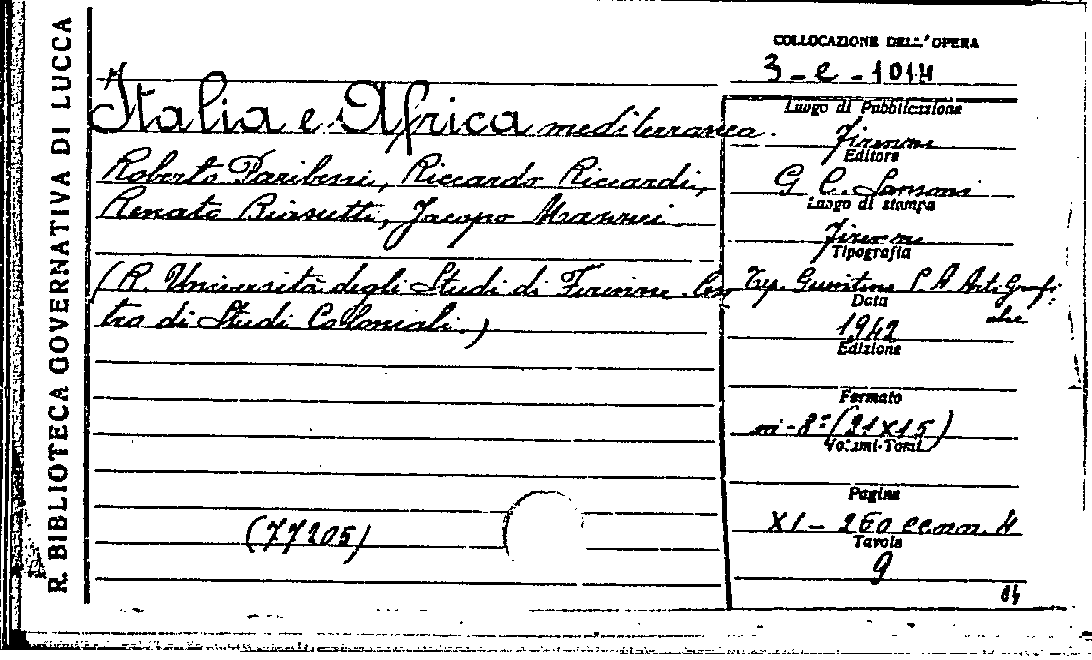 R. BIBLIOTECA GOVERNATIVA DI LUCCA
Italia e Africa mediterranea.
Roberto Paribeni, Riccardo Riccardi,
Renato Biasutti, Jacopo Mazzei.
(R. Università degli Studi di Firenze. Cen
tro di Studi Coloniali.)
(77205)
COLLOCAZIONE DELL'OPERA
3-e-1014
Luogo di Pubblicazione
Firenze
Editore
G. C. Sansoni
Luogo di stampa
Firenze
Tipografia
Tip. Giuntina S. A. Arti Grafi-
che
Data
1942
Edizione
Formato
in-8° (21x15)
Volumi-Tomi
Pagine
XI - 260 4
Tavole
9